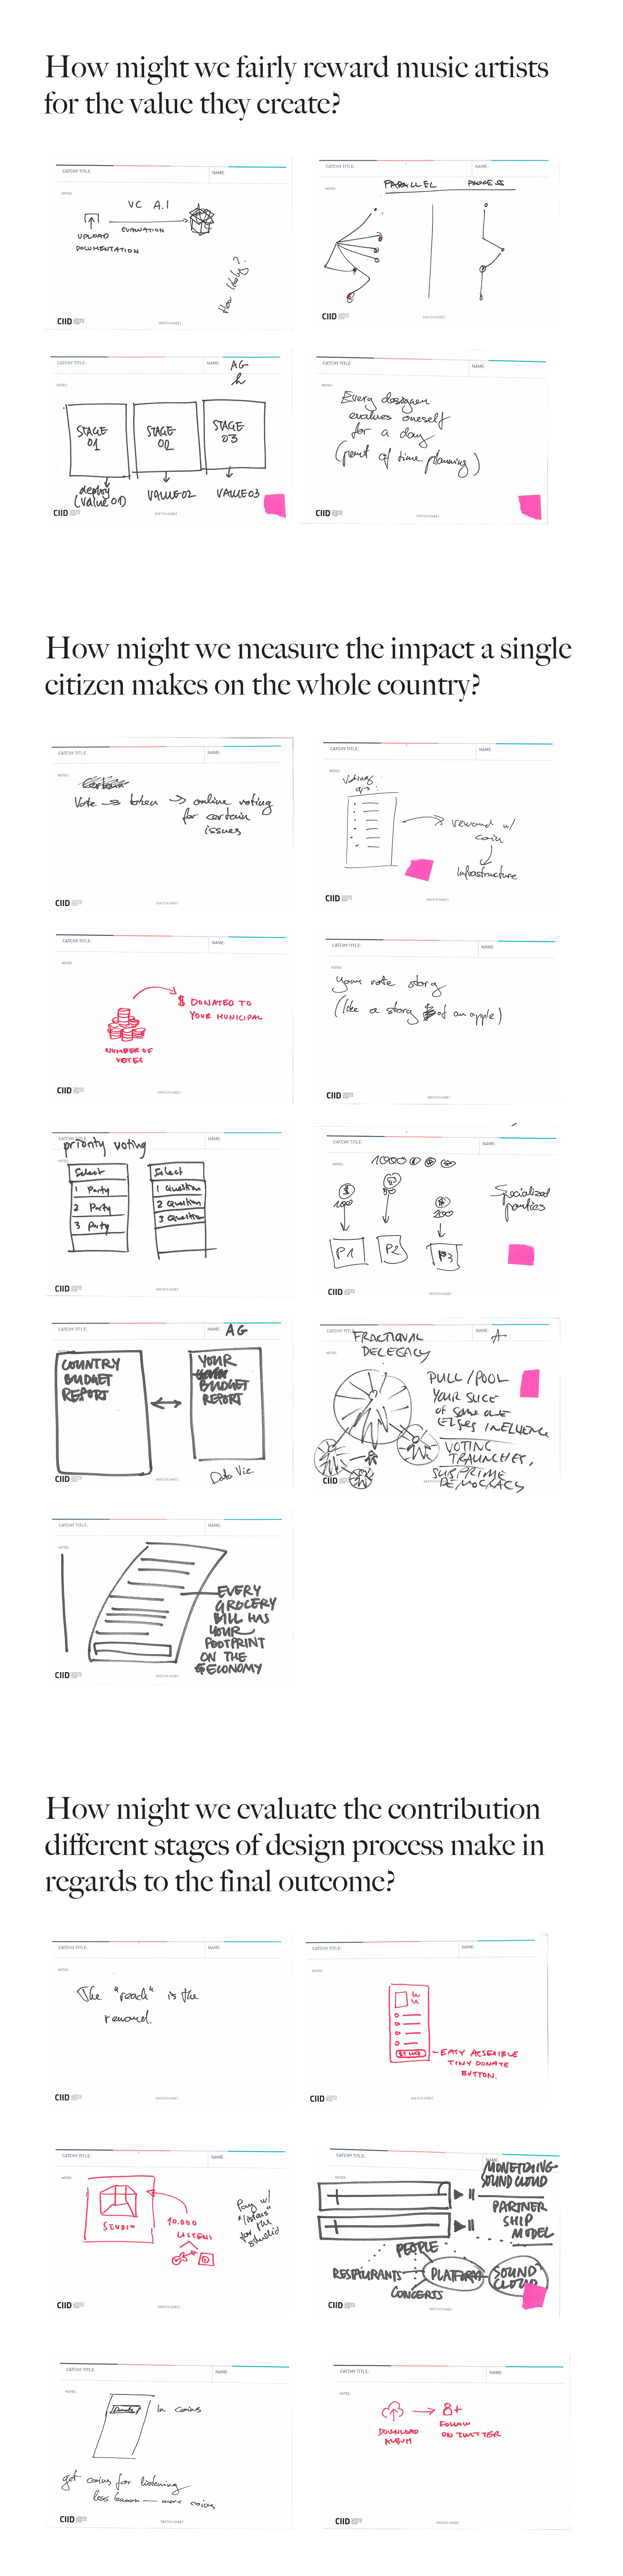 How might we fairly reward music artists
for the value they create?
CATCHY TITLE:
NAME:
NOTES:
VC A.I
UPLOAD
DOCUMENTATION
EVALUATION
How likely?
CIID
SKETCH SHEET
CATCHY TITLE:
NAME:
NOTES:
PARALLEL PROCESS
CIID
SKETCH SHEET
CATCHY TITLE:
NAME: AG
NOTES:
STAGE
01
STAGE
02
STAGE
03
deploy
(value 01)
VALUE 02
VALUE 03
CIID
SKETCH SHEET
CATCHY TITLE:
NAME:
NOTES:
Every designer
evalues oneself
for a day
(part of time planning)
CIID
SKETCH SHEET
How might we measure the impact a single
citizen makes on the whole country?
CATCHY TITLE:
NAME:
NOTES:
Vote → token → online voting
for certain
issues
CIID
SKETCH SHEET
CATCHY TITLE:
NAME:
NOTES:
Voting
reward w/
coin
Infrastructure
CIID
SKETCH SHEET
CATCHY TITLE:
NAME:
NOTES:
$ DONATED TO
YOUR MUNICIPAL
NUMBER OF
VOTES
CIID
SKETCH SHEET
CATCHY TITLE:
NAME:
NOTES:
your vote story
(like a story of an apple)
CIID
SKETCH SHEET
CATCHY TITLE:
NAME:
priority voting
NOTES:
Select
1 Party
2 Party
3 Party
Select
1 Question
2 Question
3 Question
CIID
SKETCH SHEET
CATCHY TITLE:
NAME:
NOTES:
1000
100
200
P1
P2
P3
Specialized
parties
CIID
SKETCH SHEET
CATCHY TITLE:
NAME: AG
NOTES:
COUNTRY
BUDGET
REPORT
YOUR
BUDGET
REPORT
Data Viz.
CIID
SKETCH SHEET
CATCHY TITLE:
NAME: A
NOTES:
FRACTIONAL
DELEGACY
PULL/POOL
YOUR SLICE
of someone
ELSES INFLUENCE
VOTING
TRAUNCHES,
SUBPRIME
DEMOCRACY
CIID
SKETCH SHEET
CATCHY TITLE:
NAME:
NOTES:
EVERY
GROCERY
BILL HAS
YOUR
FOOTPRINT
ON THE
ECONOMY
CIID
SKETCH SHEET
How might we evaluate the contribution
different stages of design process make in
regards to the final outcome?
CATCHY TITLE:
NAME:
NOTES:
The "reach" is the
reward.
CIID
SKETCH SHEET
CATCHY TITLE:
NAME:
NOTES:
EASY ACCESIBLE
TINY DONATE
BUTTON.
CIID
SKETCH SHEET
CATCHY TITLE:
NAME:
NOTES:
STUDIO
10.000
LISTENS
Pay w/
"listens"
for the
studio
CIID
SKETCH SHEET
CATCHY TITLE:
NAME:
NOTES:
MONETIZING
SOUND CLOUD
PARTNER
SHIP
MODEL
PEOPLE
RESTAURANTS
PLATFORM
SOUND
CLOUD
CONCERTS
CIID
SKETCH SHEET
CATCHY TITLE:
NAME:
NOTES:
Donate
In coins
get coins for listening
less known — more coins
CIID
SKETCH SHEET
CATCHY TITLE:
NAME:
NOTES:
DOWNLOAD
ALBUM
FOLLOW
ON TWITTER
CIID
SKETCH SHEET